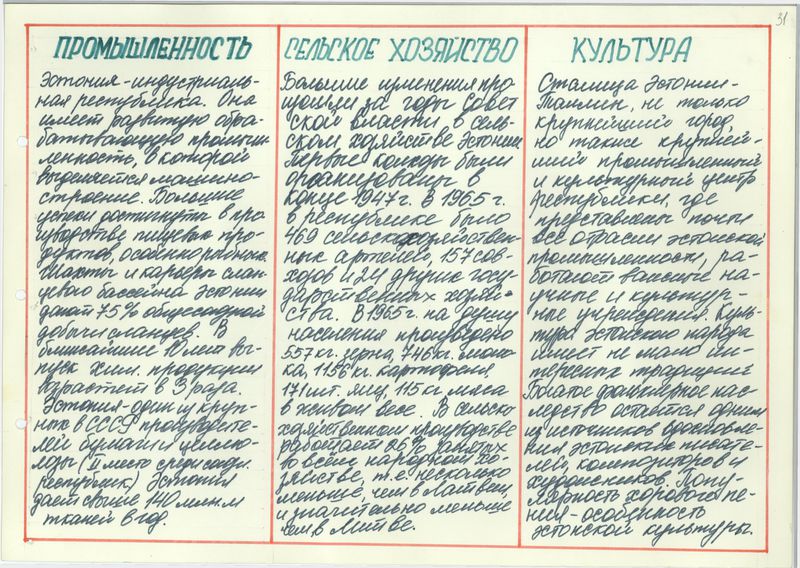 31
ПРОМЫШЛЕННОСТЬ
Эстония-индустриаль-
ная республика. Она
имеет развитую обра-
батывающую промыш-
ленность, в которой
выделяется машино-
строение. Большие
успехи достигнуты в про-
изводстве пищевых про-
дуктов, особенно рыбных.
Шахты и карьеры слан-
цевого бассейна Эстонии
дают 75% общесоюзной
добычи сланцев. В
ближайшие 10 лет вы-
пуск хим. продукции
возрастет в 3 раза.
Эстония-один из круп-
ных в СССР производите-
лей бумаги и целлю-
лозы (II место среди союзн.
республик) Эстония
дает свыше 140 млн. м
тканей в год.
СЕЛЬСКОЕ ХОЗЯЙСТВО
Большие изменения про-
изошли за годы Совет
ской власти в сель-
ском хозяйстве Эстонии
Первые колхозы были
организованы в
конце 1947г. В 1965г.
в республике было
469 сельскохозяйствен-
ных артелей, 157 сов-
хозов и 24 других госу-
дарственных хозяй-
ства. В 1965г. на душу
населения произведено
557кг. зерна, 746кг. моло-
ка, 1156 кг. картофеля
171 шт. яиц, 115 кг. мяса
в живом весе. В сельско-
хозяйственном производстве
работает 26% занятых
во всем народном хо-
зяйстве, т.е. несколько
меньше, чем в Латвии,
и значительно меньше
чем в Литве.
КУЛЬТУРА
Столица Эстонии-
Таллин, не только
крупнейший город,
но также крупней-
ший промышленный
и культурный центр
республики, где
представлены почти
все отрасли эстонской
промышленности, ра-
ботают важные на-
учные и культур-
ные учреждения. Куль-
тура эстонского народа
имеет не мало ин-
тересных традиций
Богатое фольклорное нас-
ледство остается одним
из источников вдохновле-
ния эстонских писате-
лей, композиторов и
художников. Попу-
лярность хорового пе-
ния-особенность
эстонской культуры.